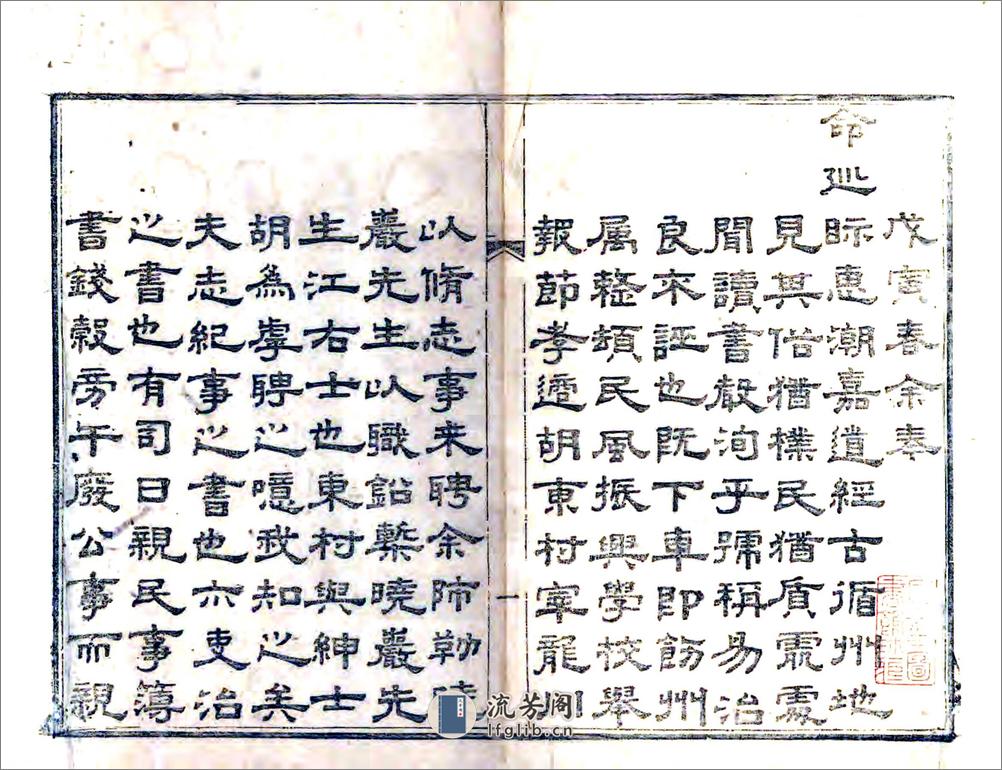 戊寅春余奉
命巡
眎惠潮嘉道經古循州地
見其俗猶樸民猶質處處
聞讀書聲洵乎號稱易治
良不誣也旣下車即飭州
属整頓民風振興學校舉
報節孝適胡東村宰龍川
一
以脩志事来聘余師勒曉
巖先生以職鉛槧曉巖先
生江右士也東村與紳士
胡為虖聘之噫我知之矣
夫志紀事之書也亦吏治
之書也有司日親民事簿
書錢穀旁午廢公事而親
流芳阁
lfglib.cn